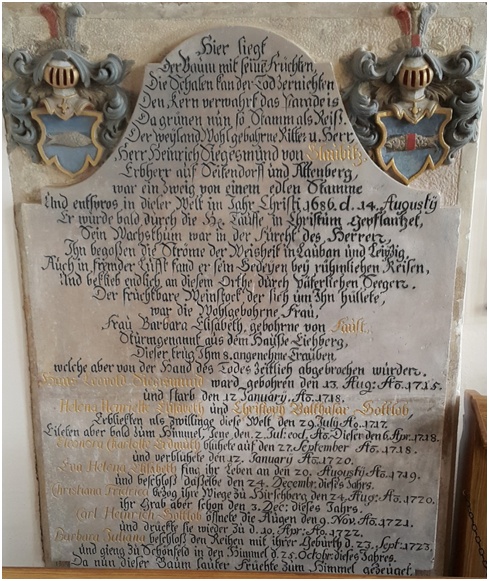 Hier liegt
der Baum mit seine Früchten,
Die Schalen kan der Tod zernichten
Den Kern verwahrt das Paradeis
Da grünen nun so Stamm als Reiß.
Der weyland Wohlgebohrne Ritter u. Herr
Herr Heinrich Siegesmund von
Erbherr auf Seifendorff und Altenberg,
war ein Zweig von einem edlen Stamme
Und entsproß in dieser Welt im Jahr Christi 1686. d. 14. Augusty
Er wurde bald durch die He. Tauffe in Christum gepflantzet,
Sein Wachsthum war in der Furcht des Herren,
Ihn begoßen die Ströme der Weisheit in Lauban und Leipzig,
Auch in fremder Lufft fand er sein Gedeyen bey rühmlichen Reisen,
Und beklieb endlich an diesem Orthe durch Väterlichen Seegen.
Der früchtbare Weinstock der sich um Ihn hüllete,
war die Wohlgebohrne Frau,
Frau Barbara Elisabeth, gebohrne von
Stürmgenant aus dem Hauße
Dieser trug Ihm 8. angenehme Trauben
welche aber von der Hand des Todes zeitlich abgebrochen wurden.
Leopold Siegismund ward gebohren den 13. Aug: Ao. 1715.
und starb den 12. January Ao. 1718.
Helena Henriette Elisabeth und Christoph Balthasar Gottlob
Erbliesten als Zwillinge diese Welt den 29. July Ao. 1717.
Eileten aber bald zum Himmel, Jene den 2. Jul: eod. Ao. Dieser den 6. Apr. 1718.
Charlotte blühete auf den 27. September Ao. 1718.
und verblühete den 12. January Ao. 1720.
Eva Helena Elisabeth fing ihr Leben an den 20. Augusty Ao. 1719.
und beschloß daßelbe den 24. Decembr. dieses Jahrs.
Christiana Friderica bezog ihre Wiege zu Hirschberg den 24. Aug: Ao. 1720.
ihr Grab aber schon den 3. Dec: dieses Jahrs.
Carl Heinrich Gottlob öfnete die Augen den 9. Nov. Ao. 1721.
und drückte sie wieder zu d. 10. Apr: Ao. 1722.
Barbara Juliana beschloß den Reihen mit ihrer Geburth d. 23. Sept: 1723.
und gieng zu Schönfeld in den Himmel d. 25. Octobr: dieses Jahrs.
Da nun dieser Baum lauter Früchte dem Himmel gezeuget.